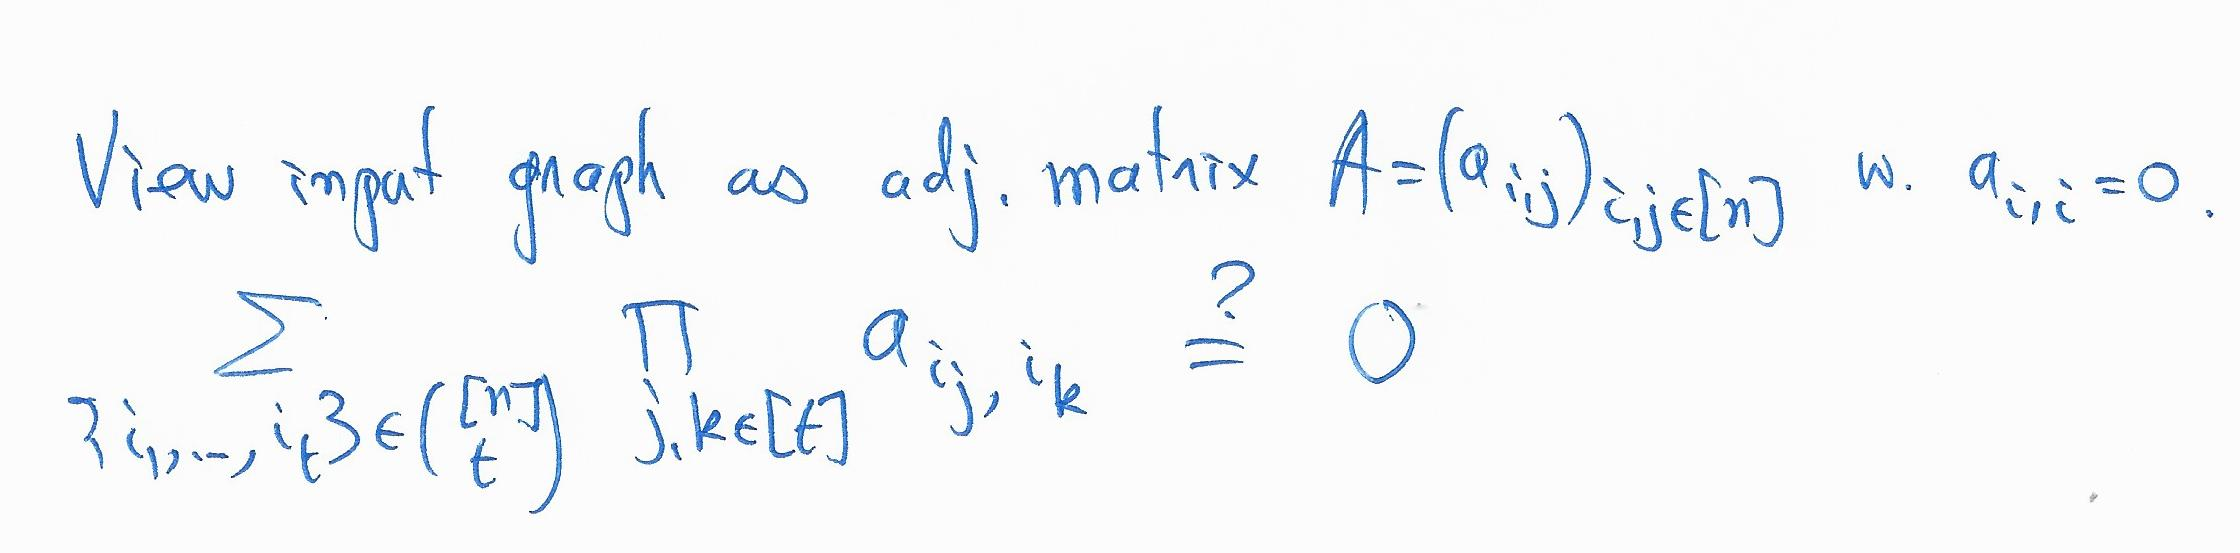 View input graph as adj. matrix A=(a_{i,j})_{i,j∈[n]} w. a_{i,i}=0.
∑_{{i_1,...,i_t}∈([n] t)} ∏_{j,k∈[t]} a_{i_j, i_k} =? 0